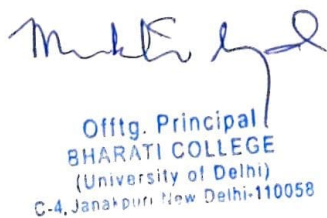 Offtg. Principal
BHARATI COLLEGE
(University of Delhi)
C-4, Janakpuri New Delhi-110058